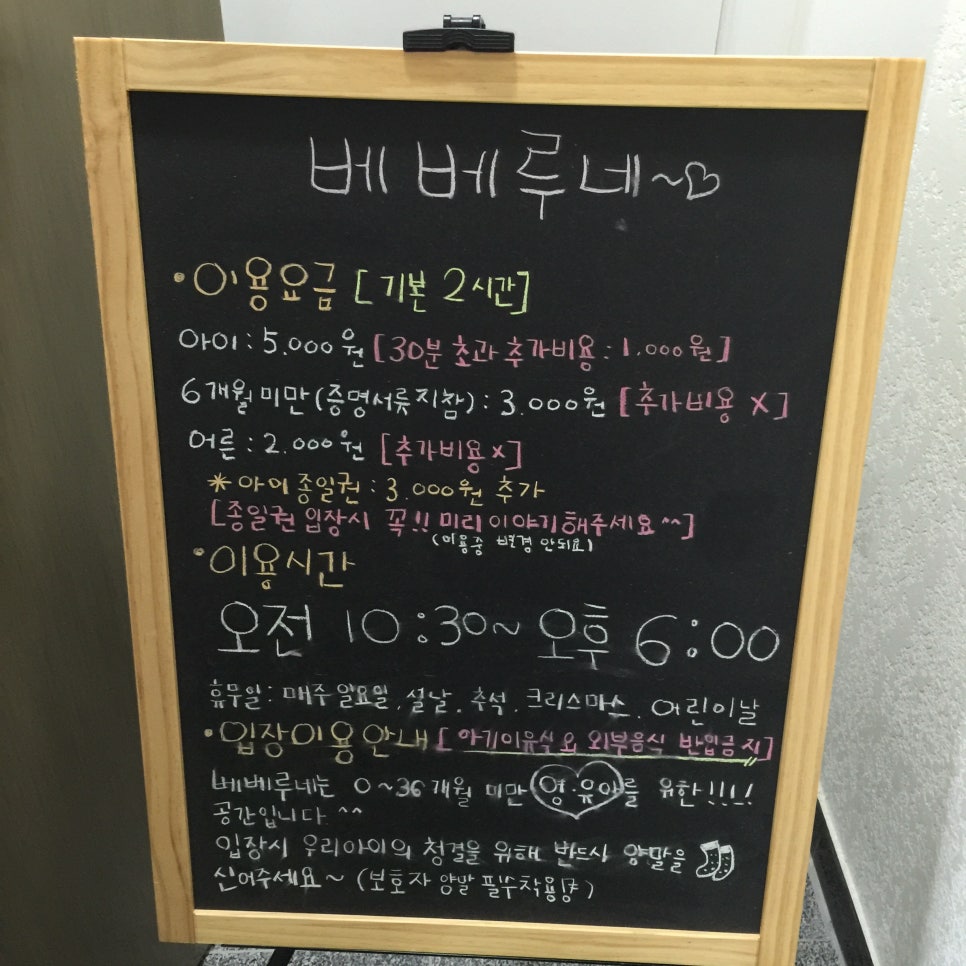 베베루네~♡
• 이용요금 [기본 2시간]
아이 : 5.000원 [30분 초과 추가비용 : 1.000원]
6개월 미만 (증명서류지참) : 3.000원 [추가비용 X]
어른 : 2.000원 [추가비용 X]
* 아이 종일권 : 3.000원 추가
[종일권 입장시 꼭!! 미리 이야기해주세요^^]
(이용중 변경 안되요)
• 이용시간
오전 10:30~ 오후 6:00
휴무일 : 매주 일요일, 설날. 추석. 크리스마스. 어린이날
• 입장이용안내 [아기이유식 & 외부음식 반입금지]
베베루네는 0~36개월 미만 영·유아를 유한!!!!
공간입니다 ^^
입장시 우리아이의 청결을 위해 반드시 양말을
신어주세요~ (보호자 양말 필수착용)